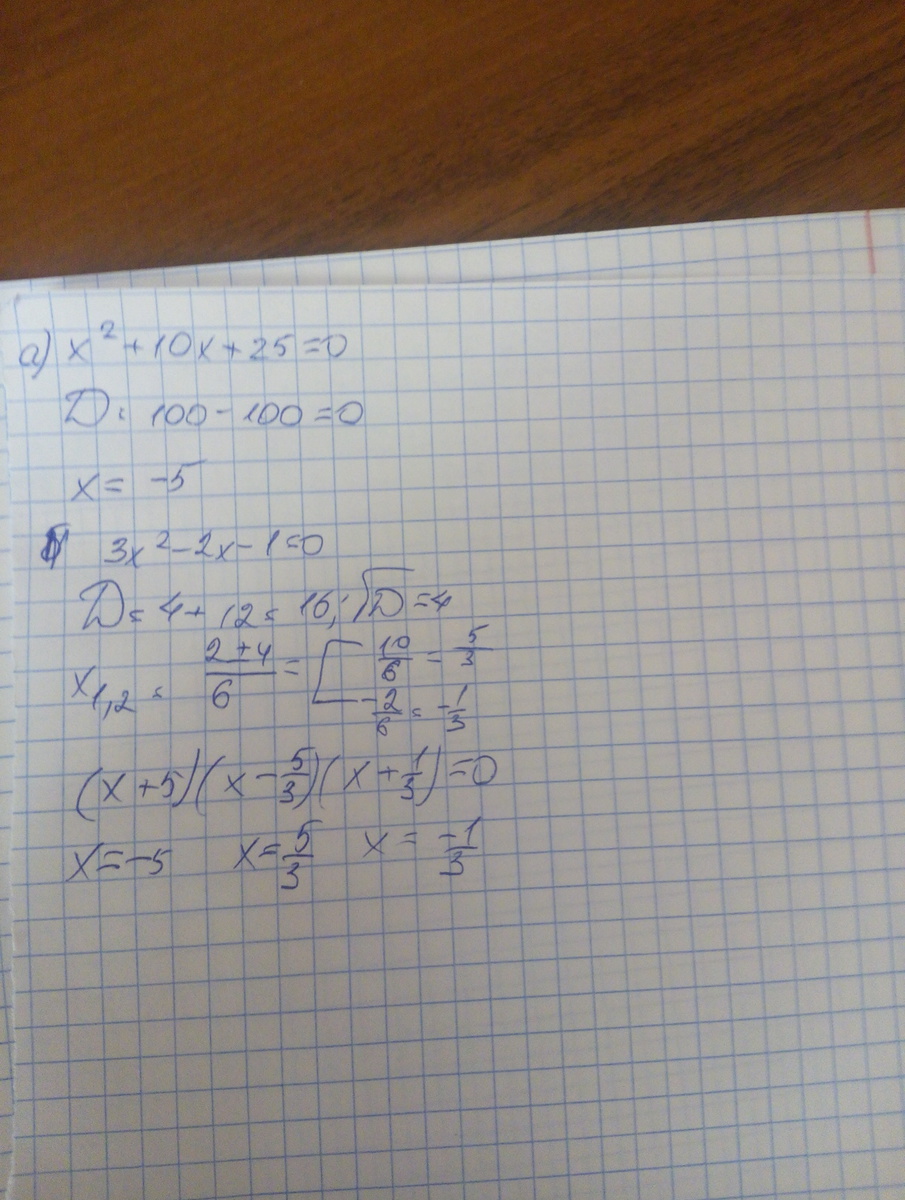 а) x² + 10x + 25 = 0
D = 100 - 100 = 0
x = -5
б 3x² - 2x - 1 = 0
D = 4 + 12 = 16; √D = 4
x1,2 = (2 ± 4)/6 = [ 10/6 = 5/3
-2/6 = -1/3
(x + 5)(x - 5/3)(x + 1/3) = 0
x = -5 x = 5/3 x = -1/3